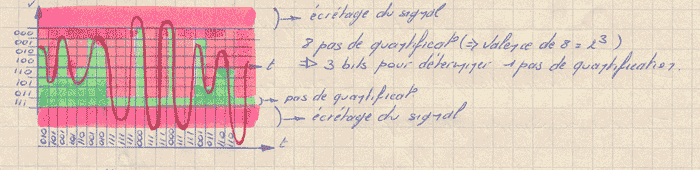 V
écrêtage du signal
000
001
010
100
110
101
011
111
8 pas de quantificat° (=> valence de 8 = 2³)
t
=> 3 bits pour déterminer 1 pas de quantification.
pas de quantificat°
écrêtage du signal
010 101 001 101 110 001 010 111 111 000 111 111 000 111 111 001 011 110 110
t